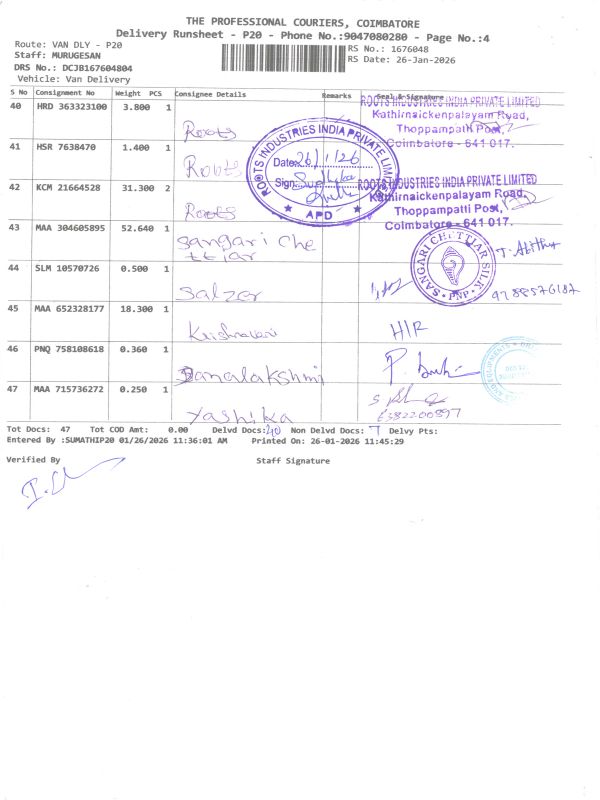 THE PROFESSIONAL COURIERS, COIMBATORE
Delivery Runsheet - P20 - Phone No.:9047080280 - Page No.:4
Route: VAN DLY - P20
Staff: MURUGESAN
DRS No.: DCJB167604804
Vehicle: Van Delivery
RS No.: 1676048
RS Date: 26-Jan-2026
S No Consignment No Weight PCS Consignee Details Remarks Seal & Signature
40 HRD 363323100 3.800 1 Roots
ROOTS INDUSTRIES INDIA PRIVATE LIMITED
Kathirnaickenpalayam Road,
Thoppampatti Post,
Coimbatore - 641 017.
41 HSR 7638470 1.400 1 Roots
ROOTS INDUSTRIES INDIA PRIVATE LIMITED
Date: 26/1/26
Sign:
★ APD ★
42 KCM 21664528 31.300 2 Roots
ROOTS INDUSTRIES INDIA PRIVATE LIMITED
Kathirnaickenpalayam Road,
Thoppampatti Post,
Coimbatore - 641 017.
43 MAA 304605895 52.640 1 Sangari Che
ttiar
SANGARI CHETTIAR SILK
PNP
44 SLM 10570726 0.500 1 Salzer
9788576187
45 MAA 652328177 18.300 1 Krishnaveni
H/R
46 PNQ 758108618 0.360 1 Danalakshmi
47 MAA 715736272 0.250 1 Yashika
6382200897
Tot Docs: 47 Tot COD Amt: 0.00 Delvd Docs: 40 Non Delvd Docs: 7 Delvy Pts:
Entered By :SUMATHIP20 01/26/2026 11:36:01 AM Printed On: 26-01-2026 11:45:29
Verified By Staff Signature